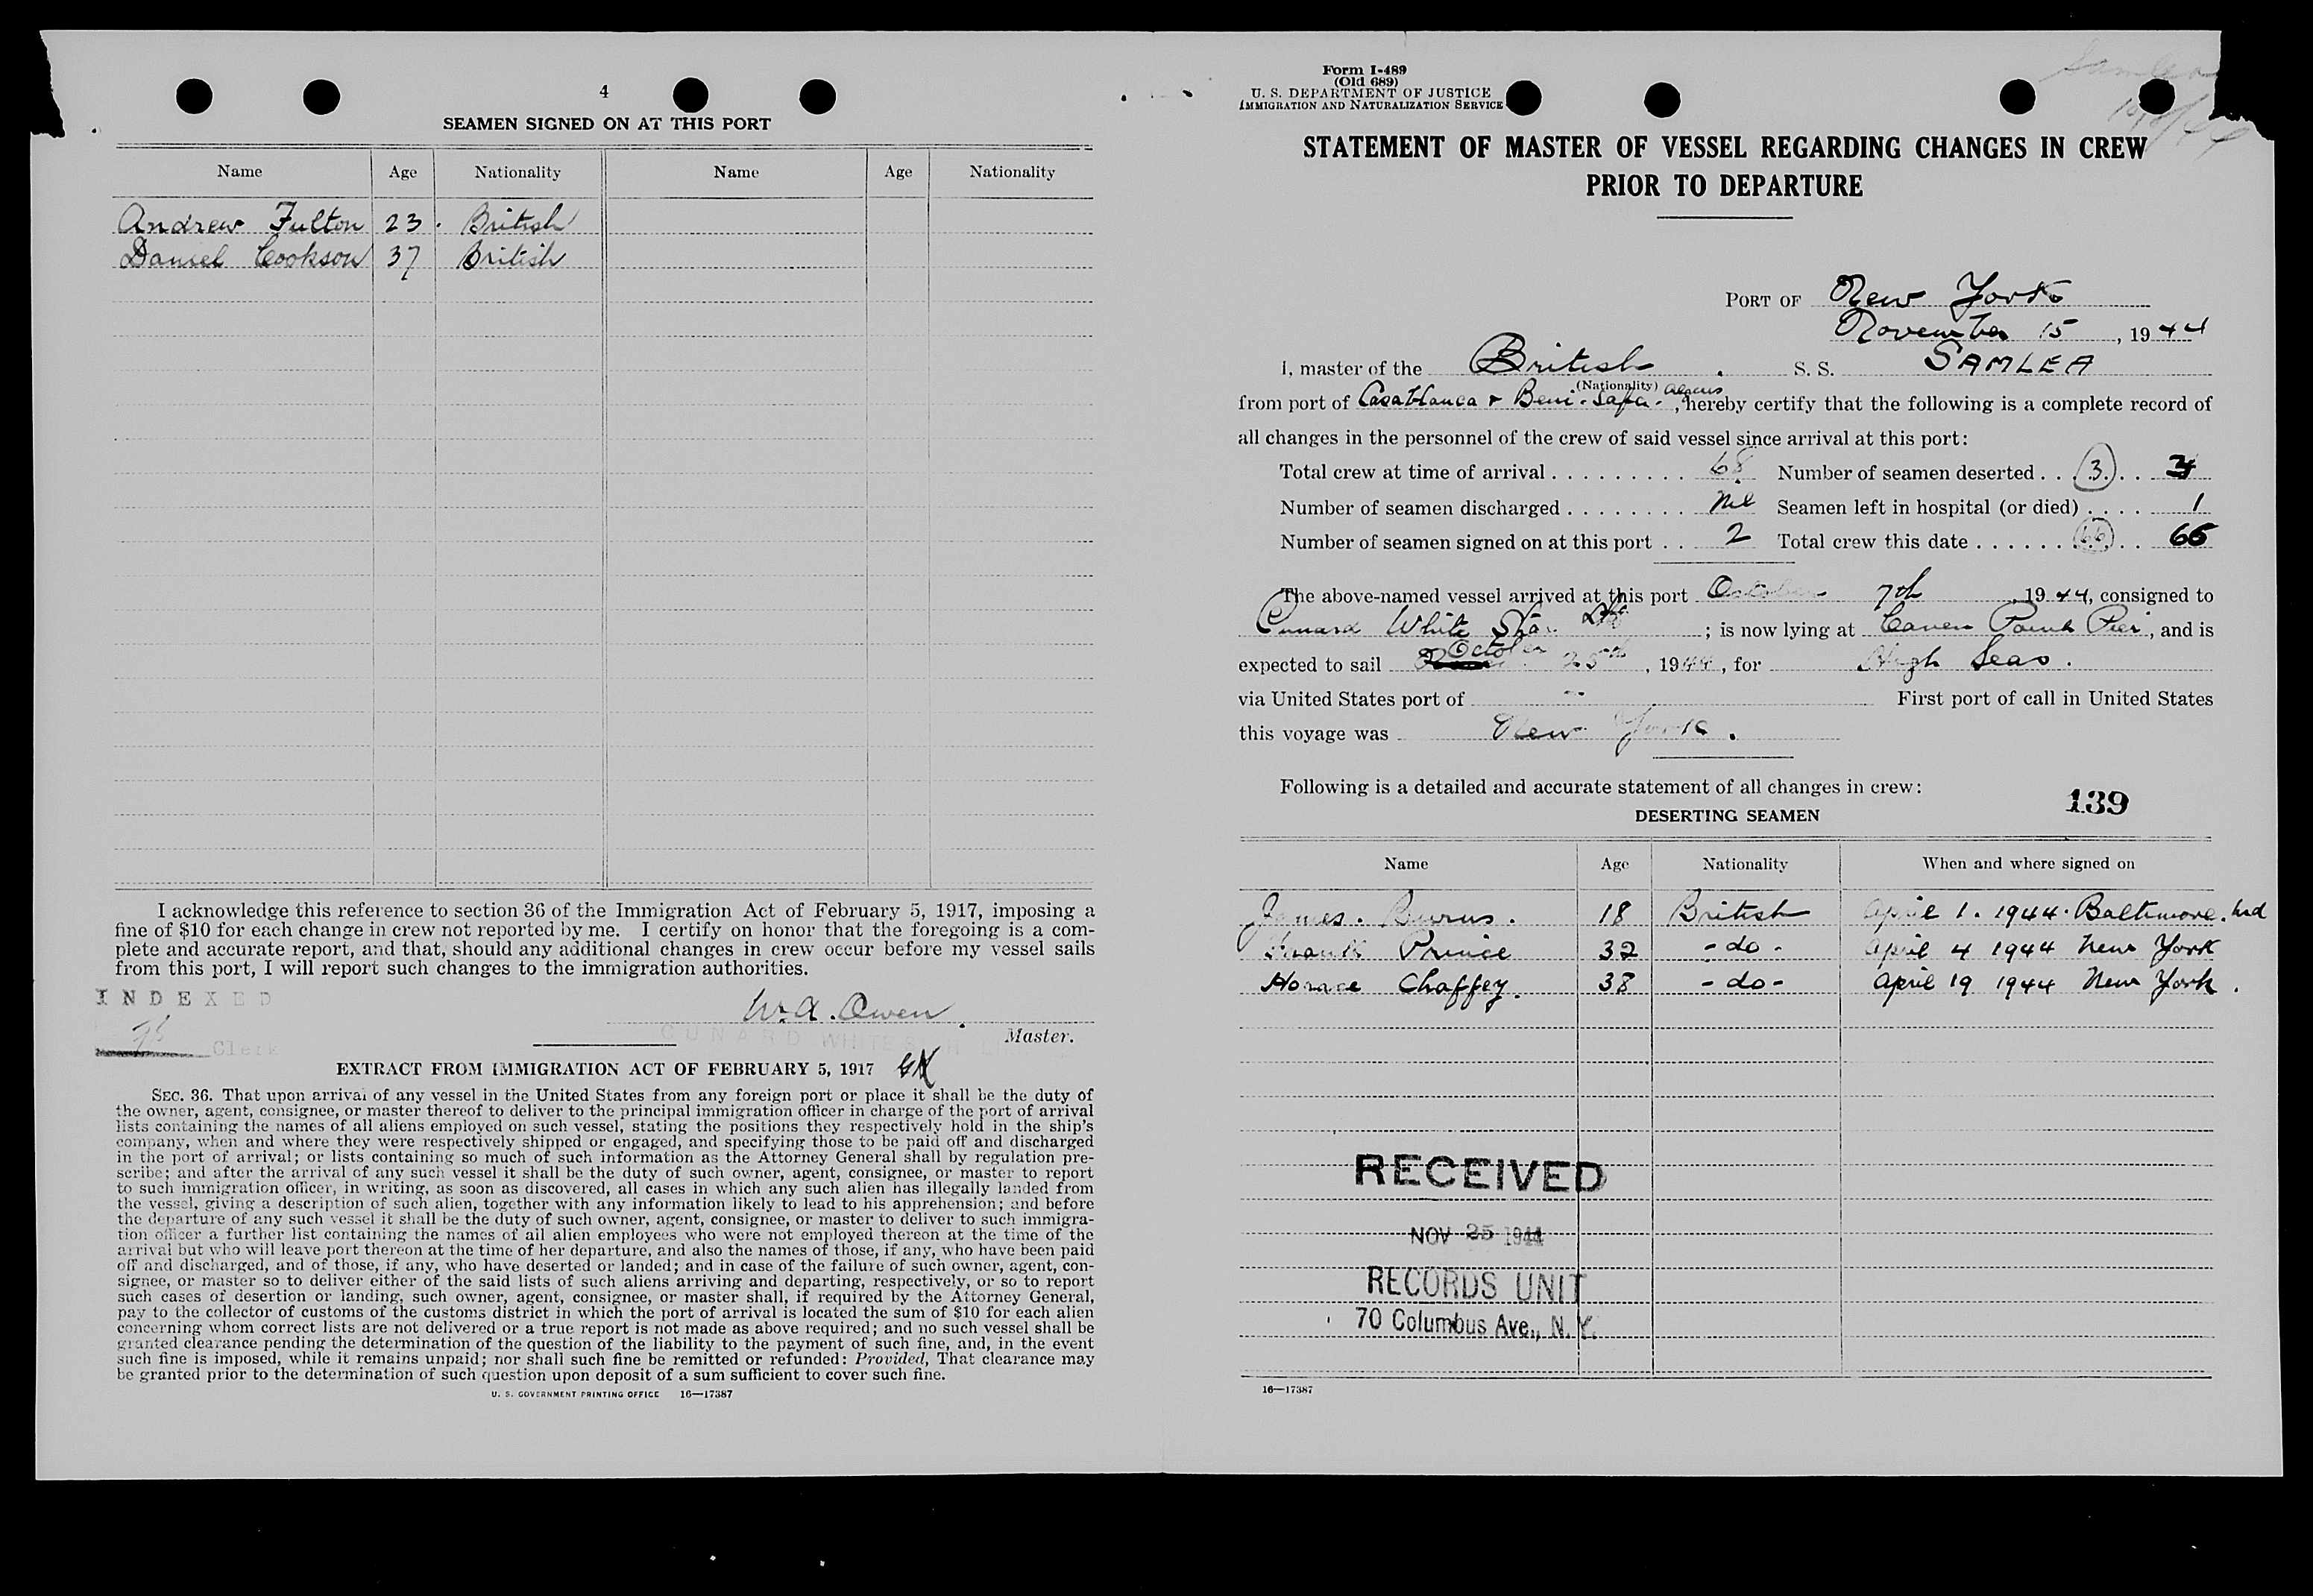 4
SEAMEN SIGNED ON AT THIS PORT
Name Age Nationality Name Age Nationality
Andrew Fulton 23 British
Daniel Cookson 37 British
I acknowledge this reference to section 36 of the Immigration Act of February 5, 1917, imposing a
fine of $10 for each change in crew not reported by me. I certify on honor that the foregoing is a com-
plete and accurate report, and that, should any additional changes in crew occur before my vessel sails
from this port, I will report such changes to the immigration authorities.
INDEXED
W. A. Owen.
Clerk
CUNARD WHITE
Master.
EXTRACT FROM IMMIGRATION ACT OF FEBRUARY 5, 1917
SEC. 36. That upon arrival of any vessel in the United States from any foreign port or place it shall be the duty of
the owner, agent, consignee, or master thereof to deliver to the principal immigration officer in charge of the port of arrival
lists containing the names of all aliens employed on such vessel, stating the positions they respectively hold in the ship's
company, when and where they were respectively shipped or engaged, and specifying those to be paid off and discharged
in the port of arrival; or lists containing so much of such information as the Attorney General shall by regulation pre-
scribe; and after the arrival of any such vessel it shall be the duty of such owner, agent, consignee, or master to report
to such immigration officer, in writing, as soon as discovered, all cases in which any such alien has illegally landed from
the vessel, giving a description of such alien, together with any information likely to lead to his apprehension; and before
the departure of any such vessel it shall be the duty of such owner, agent, consignee, or master to deliver to such immigra-
tion officer a further list containing the names of all alien employees who were not employed thereon at the time of the
arrival but who will leave port thereon at the time of her departure, and also the names of those, if any, who have been paid
off and discharged, and of those, if any, who have deserted or landed; and in case of the failure of such owner, agent, con-
signee, or master so to deliver either of the said lists of such aliens arriving and departing, respectively, or so to report
such cases of desertion or landing, such owner, agent, consignee, or master shall, if required by the Attorney General,
pay to the collector of customs of the customs district in which the port of arrival is located the sum of $10 for each alien
concerning whom correct lists are not delivered or a true report is not made as above required; and no such vessel shall be
granted clearance pending the determination of the question of the liability to the payment of such fine, and, in the event
such fine is imposed, while it remains unpaid; nor shall such fine be remitted or refunded: Provided, That clearance may
be granted prior to the determination of such question upon deposit of a sum sufficient to cover such fine.
U. S. GOVERNMENT PRINTING OFFICE 16—17387
Form I-489
(Old 689)
U. S. DEPARTMENT OF JUSTICE
IMMIGRATION AND NATURALIZATION SERVICE
Samlea
STATEMENT OF MASTER OF VESSEL REGARDING CHANGES IN CREW
PRIOR TO DEPARTURE
PORT OF New York
November 15, 1944
I, master of the British S. S. SAMLEA
(Nationality)
from port of Casablanca & Beni-Safa-, hereby certify that the following is a complete record of
all changes in the personnel of the crew of said vessel since arrival at this port:
Total crew at time of arrival . . . . . . . . . 68 Number of seamen deserted . . (3) . . 3
Number of seamen discharged . . . . . . . . Nil Seamen left in hospital (or died) . . . . 1
Number of seamen signed on at this port . . 2 Total crew this date . . . . . . (66) . . 66
The above-named vessel arrived at this port October 7th, 1944, consigned to
Cunard White Star Ltd; is now lying at Caven Point Pier, and is
expected to sail October 25th, 1944, for High Seas.
via United States port of - First port of call in United States
this voyage was New York.
Following is a detailed and accurate statement of all changes in crew:
139
DESERTING SEAMEN
Name Age Nationality When and where signed on
James. Burns. 18 British April 1. 1944. Baltimore. Md
Frank Prince 32 -do- April 4 1944 New York
Horace Chaffey. 38 -do- April 19 1944 New York.
RECEIVED
NOV 25 1944
RECORDS UNIT
70 Columbus Ave., N. Y.
16—17387